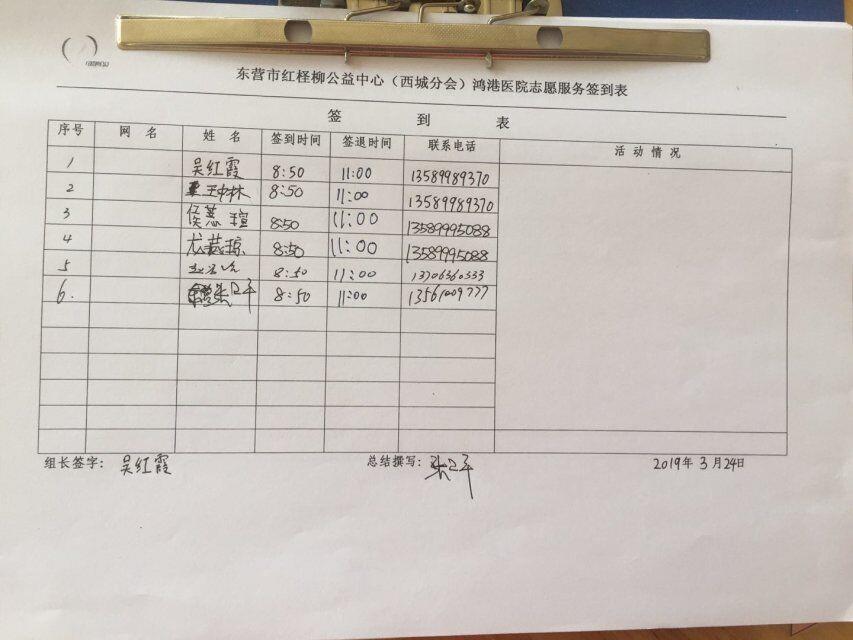 东营市红柽柳公益中心（西城分会）鸿港医院志愿服务签到表
签 到 表
序号 网 名 姓 名 签到时间 签退时间 联系电话 活动情况
1 吴红霞 8:50 11:00 13589989370
2 王中林 8:50 11:00 13589989370
3 侯慧瑄 8:50 11:00 13589995088
4 尤燕琼 8:50 11:00 13589995088
5 8:50 11:00 13706360333
6. 8:50 11:00 13561009777
组长签字： 吴红霞 总结撰写： 2019年 3月24日